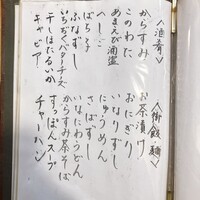 〈酒肴〉
からすみ
このわた
あまえび酒盗
へしこ
ばちこ
ふなずし
いちぢくバターチーズ
干しほたるいか
キャビア
〈御飯麺〉
お茶漬け
おにぎり
いなりずし
にゅうめん
さばずし
いなにわうどん
からすみ茶そば
すっぽんスープ
チャーハン